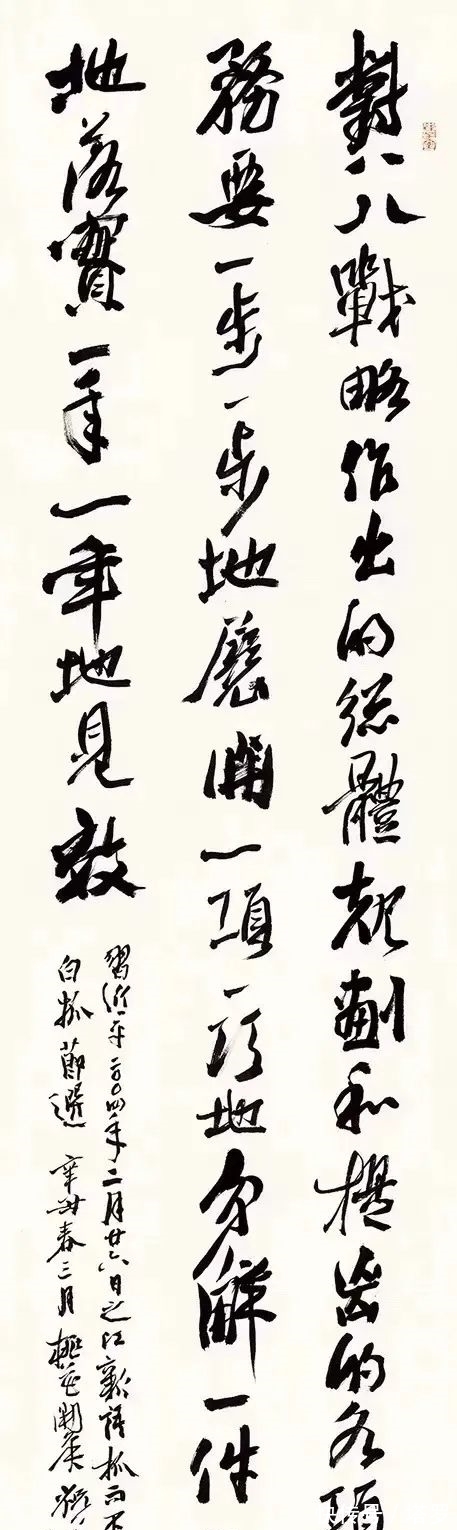 對八八戰略作出的總體規劃和提出的各項
務要一步一步地展開一項一項地分解一件
地落實一年一年地見效
習近平二〇〇四年二月廿六日之江新語抓而不
白抓節選 辛丑春三月 桃花開矣